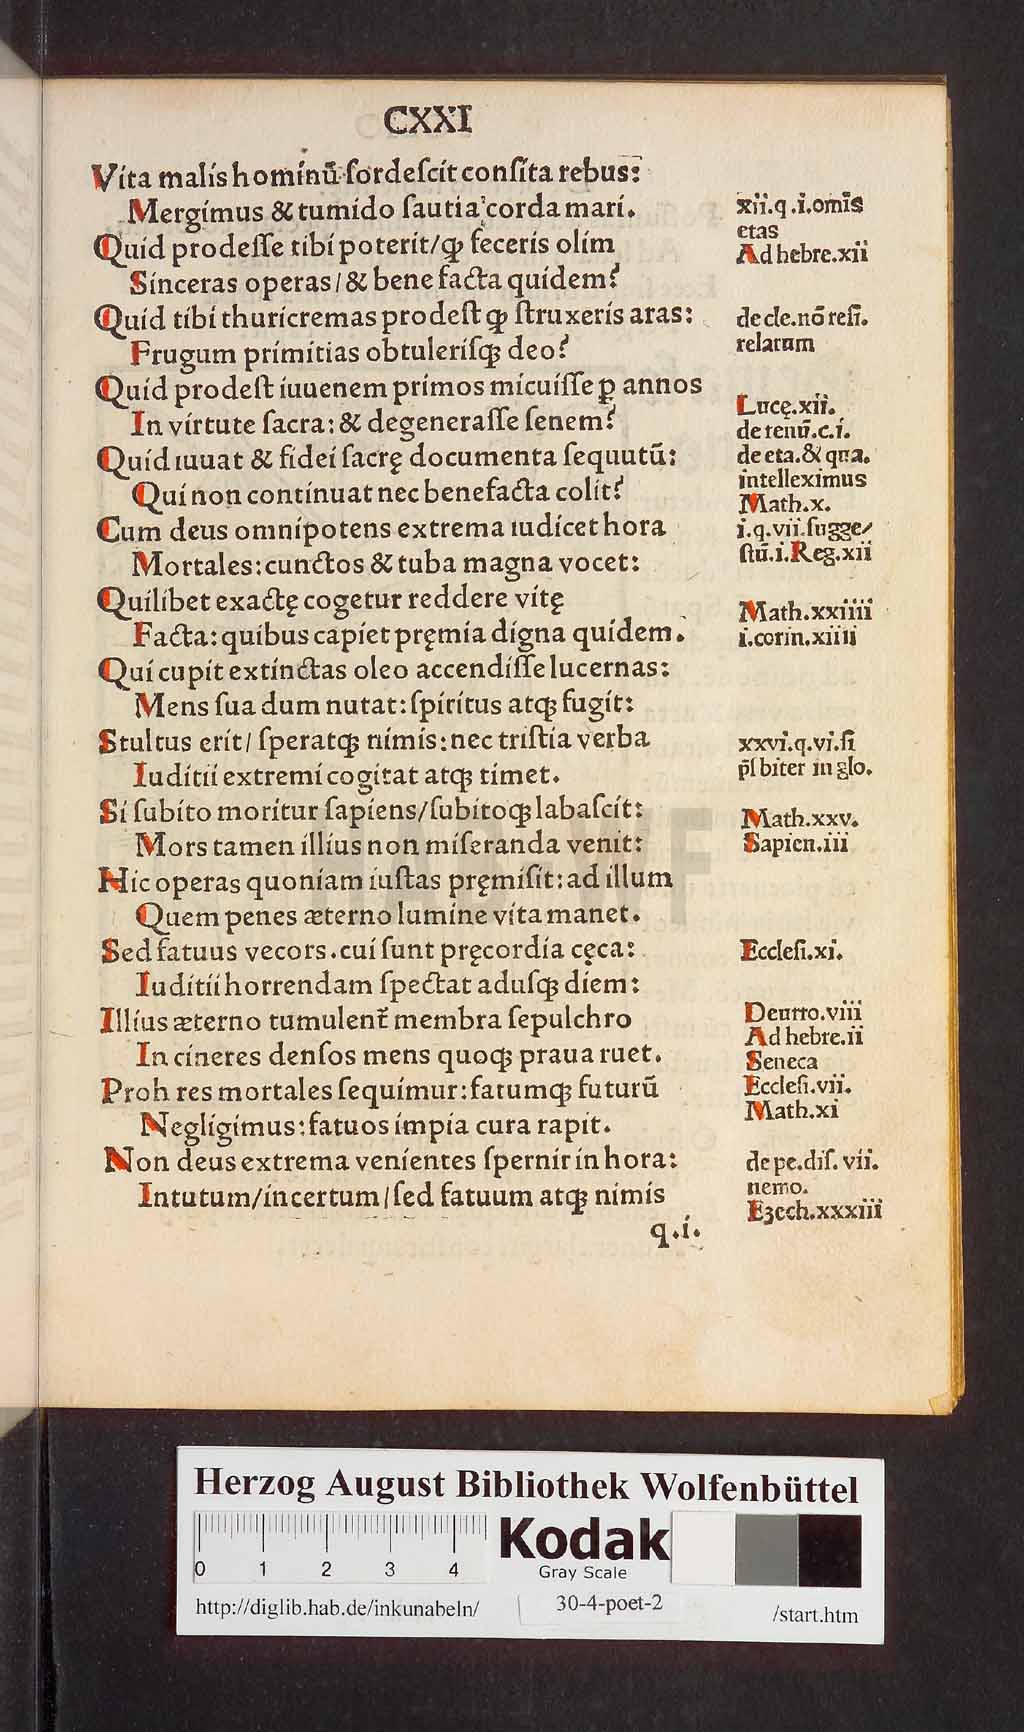 CXXI
Vita malis hominū ſordeſcit conſita rebus:
Mergimus & tumido ſautia corda mari.
Quid prodeſſe tibi poterit/ꝙ feceris olim
Sinceras operas/& bene facta quidem?
Quid tibi thuricremas prodeſt ꝙ ſtruxeris aras:
Frugum primitias obtuleriſqꝫ deo?
Quid prodeſt iuuenem primos micuiſſe ꝑ annos
In virtute ſacra: & degeneraſſe ſenem?
Quid iuuat & fidei ſacrę documenta ſequutū:
Qui non continuat nec benefacta colit?
Cum deus omnipotens extrema iudicet hora
Mortales: cunctos & tuba magna vocet:
Quilibet exactę cogetur reddere vitę
Facta: quibus capiet pręmia digna quidem.
Qui cupit extinctas oleo accendiſſe lucernas:
Mens ſua dum nutat: ſpiritus atqꝫ fugit:
Stultus erit/ ſperatqꝫ nimis: nec triſtia verba
Iuditii extremi cogitat atqꝫ timet.
Si ſubito moritur ſapiens/ſubitoqꝫ labaſcit:
Mors tamen illius non miſeranda venit:
Hic operas quoniam iuſtas pręmiſit: ad illum
Quem penes æterno lumine vita manet.
Sed fatuus vecors. cui ſunt pręcordia cęca:
Iuditii horrendam ſpectat aduſqꝫ diem:
Illius æterno tumulent᷑ membra ſepulchro
In cineres denſos mens quoqꝫ praua ruet.
Proh res mortales ſequimur: fatumqꝫ futurū
Negligimus: fatuos impia cura rapit.
Non deus extrema venientes ſpernit in hora:
Intutum/incertum/ſed fatuum atqꝫ nimis
q.i.
xii.q.i.omīs
etas
Ad hebre.xii
de cle.nō reſi.
relatum
Lucę.xii.
de renū.c.i.
de eta.& qua.
intelleximus
Math.x.
i.q.vii.ſugge/
ſtū.i.Reg.xii
Math.xxiiii
i.corin.xiiii
xxvi.q.vi.ſi
p̄ſbiter in glo.
Math.xxv.
Sapien.iii
Eccleſi.xi.
Deutro.viii
Ad hebre.ii
Seneca
Eccleſi.vii.
Math.xi
de pe.diſ.vii.
nemo.
Ezech.xxxiii
HAB WF
Herzog August Bibliothek Wolfenbüttel
0 1 2 3 4
Kodak
Gray Scale
http://diglib.hab.de/inkunabeln/
30-4-poet-2
/start.htm